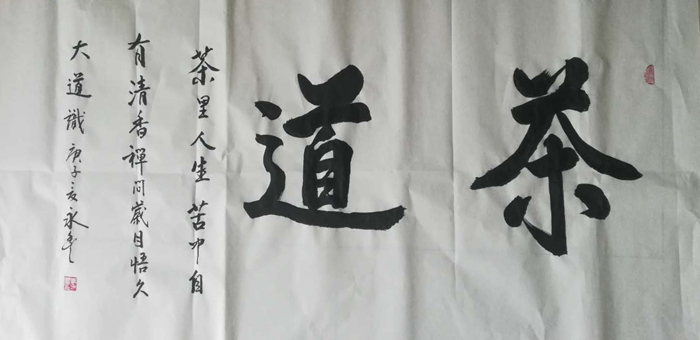 茶道
茶里人生苦中自
有清香禅问岁月悟久
大道識 庚子夏永